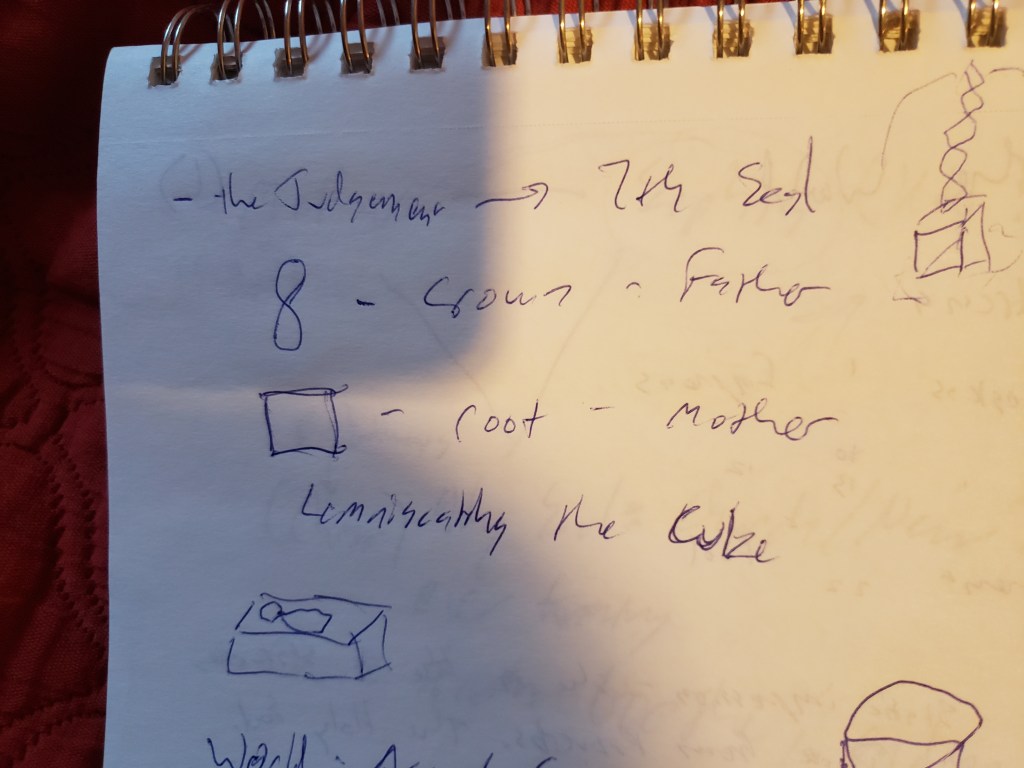 - the Judgement → 7th Seal
8 - Crown - Father -
□ - root - Mother
Lemniscating the Cube
World